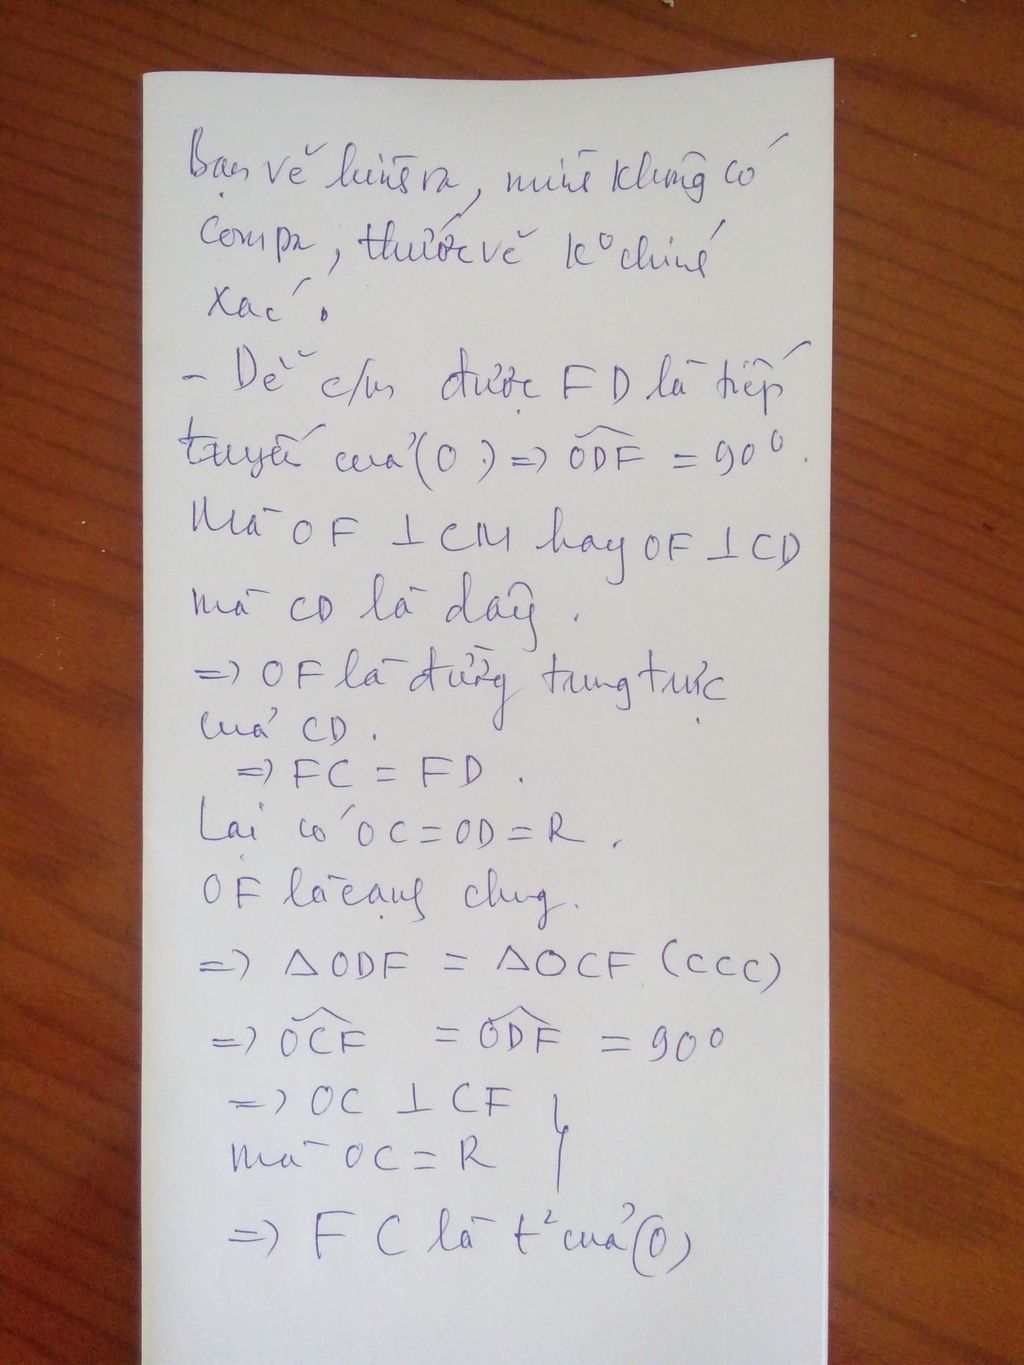 Bạn vẽ hình ra, mình không có
compa, thước vẽ k° chính
xác.
- Dễ c/m được FD là tiếp
tuyến của (O.) => ODF = 90°.
Mà OF ⊥ CM hay OF ⊥ CD
mà CD là dây.
=> OF là đường trung trực
của CD.
=> FC = FD.
Lại có OC = OD = R.
OF là cạnh chung.
=> ΔODF = ΔOCF (CCC)
=> OCF = ODF = 90°
=> OC ⊥ CF
mà OC = R
=> FC là t² của (O)